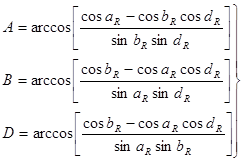 A = arccos[ (cos a_R − cos b_R cos d_R) / (sin b_R sin d_R) ]
B = arccos[ (cos b_R − cos a_R cos d_R) / (sin a_R sin d_R) ]
D = arccos[ (cos b_R − cos a_R cos d_R) / (sin a_R sin b_R) ] }